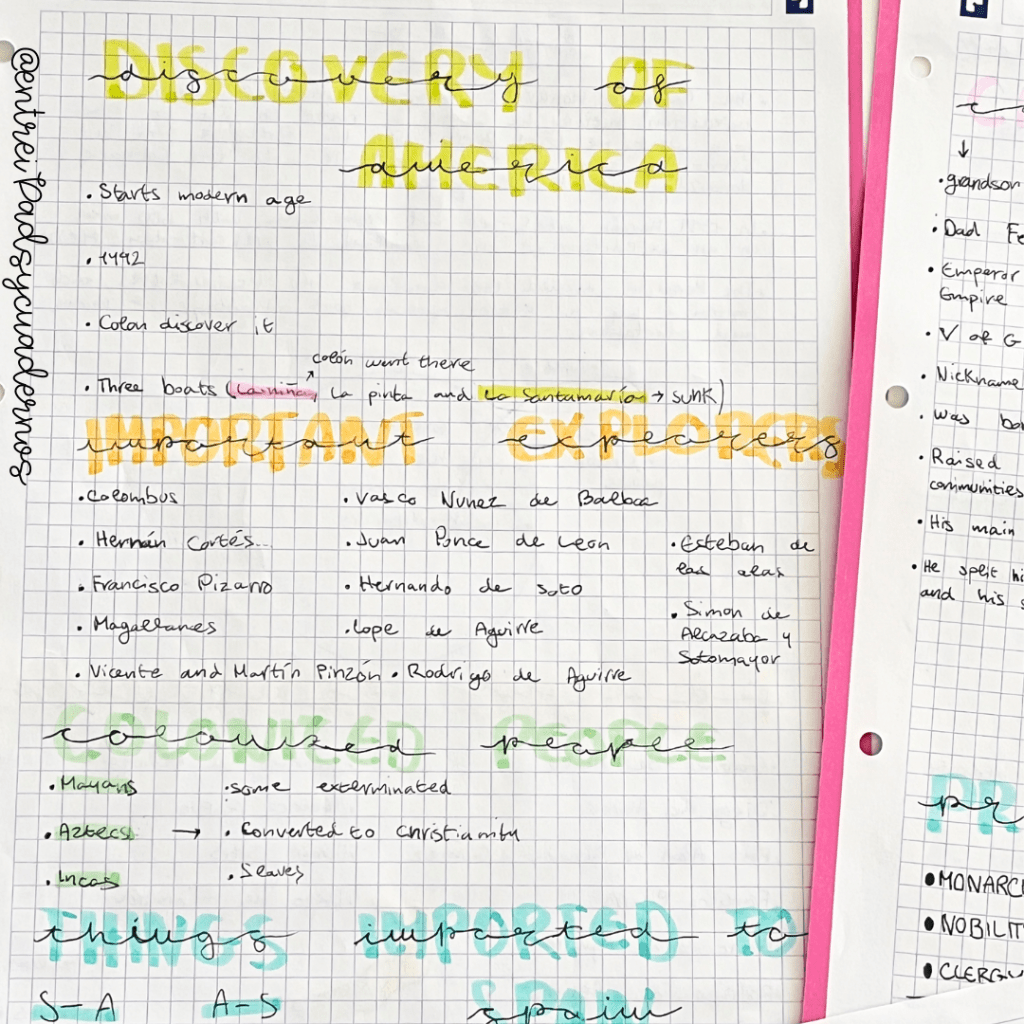 @entreiPadsycuadernos
DISCOVERY OF
discovery of
AMERICA
america
• Starts modern age
• 1492
• Colon discover it
colón went there
• Three boats (La niña, La pinta and La Santamaría → sunk)
IMPORTANT EXPLORERS
important explorers
• Colombus
• Hernán Cortés
• Francisco Pizarro
• Magallanes
• Vicente and Martín Pinzón
• Vasco Nunez de Balboa
• Juan Ponce de León
• Hernando de soto
• Lope de Aguirre
• Rodrigo de Aguirre
• Esteban de
las alas
• Simon de
Alcazaba y
Sotomayor
COLONIZED PEOPLE
colonized people
• Mayans
• Aztecs →
• Incas
• some exterminated
• Converted to Christianity
• Slaves
THINGS IMPORTED TO
things imported to
SPAIN
spain
S-A A-S
↓
• grandson
• Dad Fe
• Emperor
Empire
• V of G
• Nickname
• Was bo
• Raised
communities
• His main
• He split hi
and his s
PR
pr
• MONARC
• NOBILIT
• CLERGY